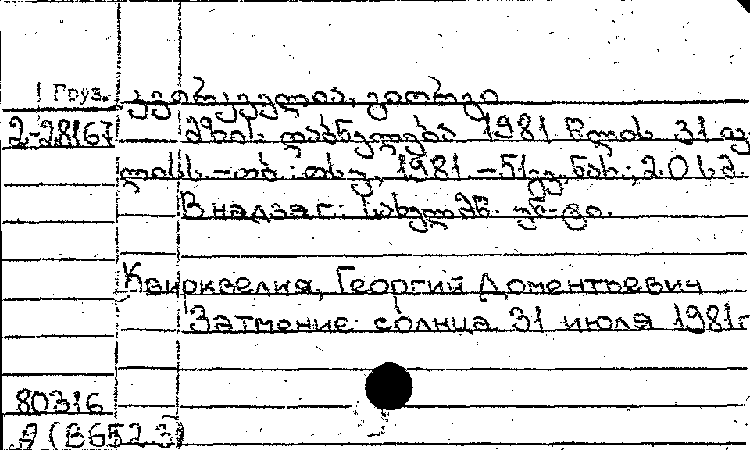 Груз. კვირკველია, გიორგი
2-28167 მზის დაბნელება 1981 წლის 31 ივ
ლისს. - თბ.: თსუ, 1981. - 51 გვ. ნახ.; 20 სმ.
В надзаг.: სახელმწ. უნ-ტი.
Квирквелия, Георгий Доментьевич
Затмение солнца 31 июля 1981г
80316
А (В652.3)